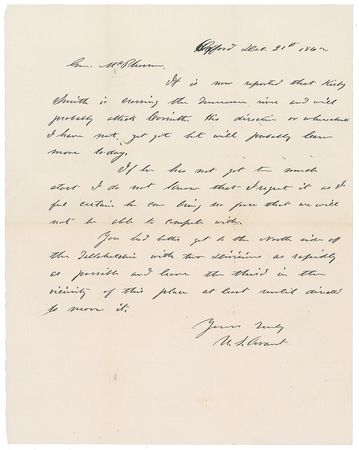 Oxford Dec. 21st 1862
Gen. McPherson
It is now reported that Kirby
Smith is crossing the Tennessee river and will
probably attack Corinth this direction or
I have not yet got but will probably learn
more to-day.
If he has not got too much
start I do not know that I regret it as I
feel certain he can bring no force that we will
not be able to compete with.
You had better get to the North side of
the Tallahatchie with two Divisions as rapidly
as possible and leave the third in the
vicinity of this place at least until directed
to move it.
Yours Truly
U. S. Grant